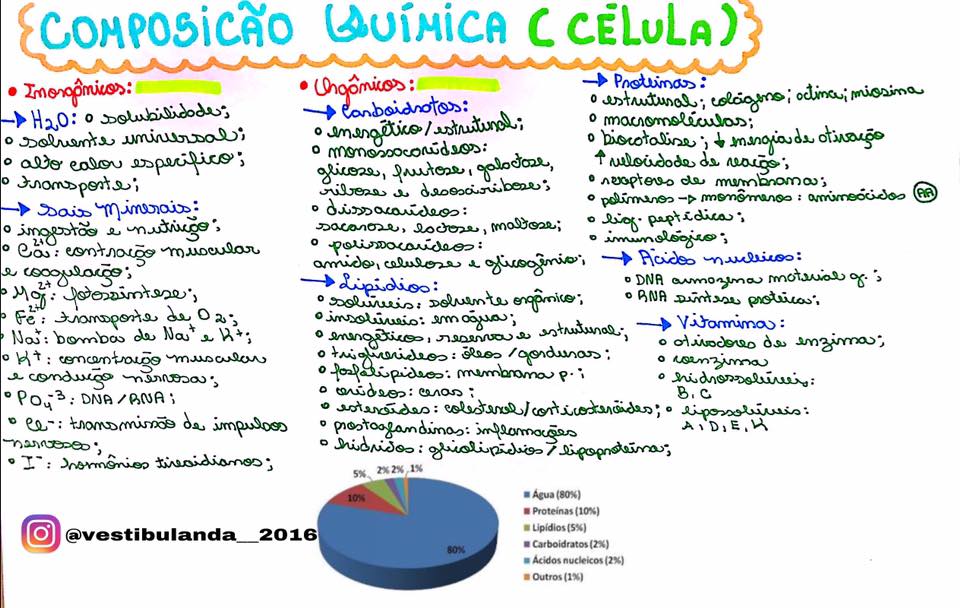 COMPOSICÃO QUÍMICA (CÉLULA)
• Inorgânicos:
→ H2O: ° solubilidade;
° solvente universal;
° alto calor específico;
° transporte;
→ Sais Minerais:
° ingestão e nutrição;
° Ca2+: contração muscular
e coagulação;
° Mg2+: fotossíntese;
° Fe2+: transporte de O2;
° Na+: bombas de Na+ e K+;
° K+: concentração muscular
e condução nervosa;
° PO4-3: DNA/RNA;
° Cl-: transmissão de impulsos
nervosos;
° I-: hormônios tireoidianos;
• Orgânicos:
→ Carboidratos:
° energético/estrutural;
° monossacarídeos:
glicose, frutose, galactose,
ribose e desoxirribose;
° dissacarídeos:
sacarose, lactose, maltose;
° polissacarídeos:
amido, celulose e glicogênio;
→ Lipídios:
° solúveis: solvente orgânico;
° insolúveis: em água;
° energéticos, reserva e estrutural;
° triglicerídeos: óleos/gorduras;
° fosfolipídeos: membrana p.;
° cerídeos: ceras;
° esteroides: colesterol/corticosteróides;
° prostaglandinas: inflamações
° híbridos: glicolipídios/lipoproteína;
→ Proteínas:
° estrutural; colágeno; actina; miosina
° macromoléculas;
° biocatálise; ↓ energia de ativação
↑ velocidade de reação;
° receptores de membrana;
° polímeros → monômeros: aminoácidos AA
° lig. peptídica;
° imunológico;
→ Ácidos nucleicos:
° DNA armazena material g.;
° RNA síntese protéica;
→ Vitamina:
° ativadores de enzima;
° coenzima
° hidrossolúveis:
B, C
° lipossolúveis:
A, D, E, K
5% 2% 2% 1%
10%
80%
Água (80%)
Proteínas (10%)
Lipídios (5%)
Carboidratos (2%)
Ácidos nucleicos (2%)
Outros (1%)
@vestibulanda__2016